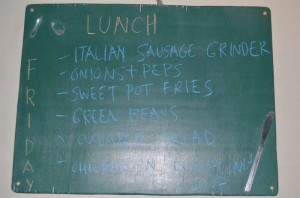 LUNCH
FRIDAY
- ITALIAN SAUSAGE GRINDER
- ONIONS + PEPS
- SWEET POT FRIES
- GREEN BEANS